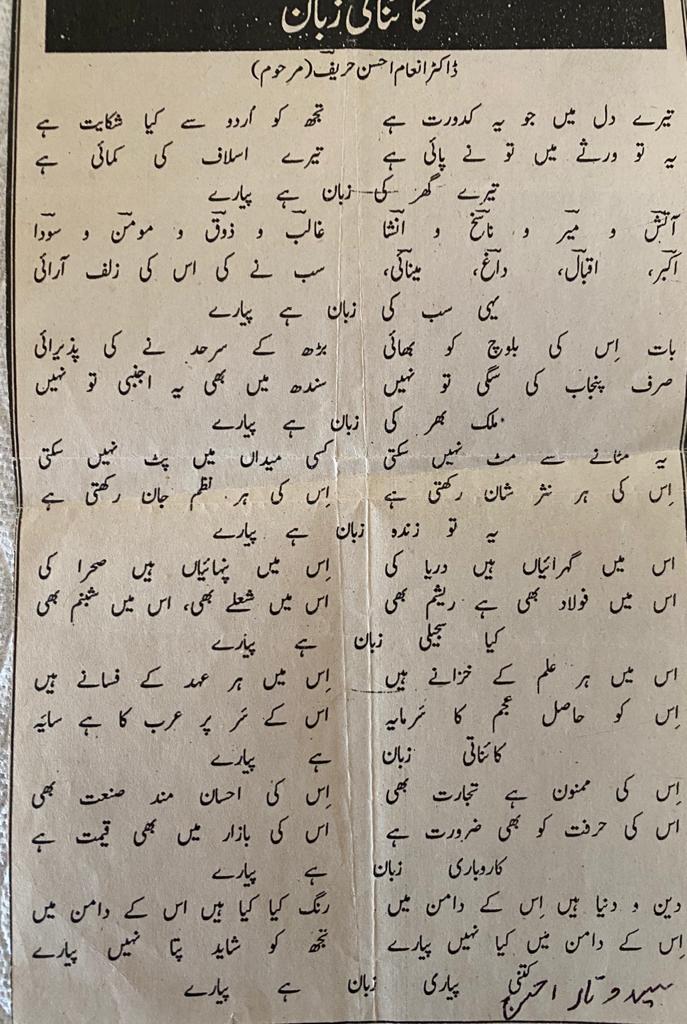 کائناتی زبان
ڈاکٹر انعام احسن حریفؔ (مرحوم)
تیرے دل میں جو یہ کدورت ہے تجھ کو اُردو سے کیا شکایت ہے
یہ تو ورثے میں تو نے پائی ہے تیرے اسلاف کی کمائی ہے
تیرے گھر کی زبان ہے پیارے
آتشؔ و میرؔ و ناسخؔ و انشاؔ غالبؔ و ذوقؔ و مومنؔ و سوداؔ
اکبرؔ، اقبالؔ، داغؔ، مینائیؔ، سب نے کی اس کی زلف آرائی
یہی سب کی زبان ہے پیارے
بات اِس کی بلوچ کو بھائی بڑھ کے سرحد نے کی پذیرائی
صرف پنجاب کی سگی تو نہیں سندھ میں بھی یہ اجنبی تو نہیں
ملک بھر کی زبان ہے پیارے
یہ مٹانے سے مٹ نہیں سکتی کسی میداں میں پٹ نہیں سکتی
اِس کی ہر نثر شان رکھتی ہے اِس کی ہر نظم جان رکھتی ہے
یہ تو زندہ زبان ہے پیارے
اس میں گہرائیاں ہیں دریا کی اِس میں پنہائیاں ہیں صحرا کی
اس میں فولاد بھی ہے ریشم بھی اس میں شعلے بھی، اس میں شبنم بھی
کیا سجیلی زبان ہے پیارے
اس میں ہر علم کے خزانے ہیں اِس میں ہر عہد کے فسانے ہیں
اِس کو حاصل عجم کا سَرمایہ اس کے سَر پر عرب کا ہے سایَہ
کائناتی زبان ہے پیارے
اِس کی ممنون ہے تجارت بھی اِس کی احسان مند صنعت بھی
اس کی حرفت کو بھی ضرورت ہے اس کی بازار میں بھی قیمت ہے
کاروباری زبان ہے پیارے
دین و دنیا ہیں اِس کے دامن میں رنگ کیا کیا ہیں اس کے دامن میں
اِس کے دامن میں کیا نہیں پیارے تجھ کو شاید پتا نہیں پیارے
کتنی پیاری زبان ہے پیارے